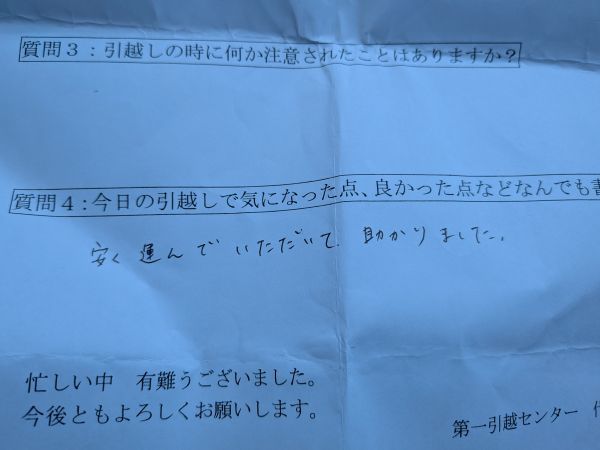 質問3：引越しの時に何か注意されたことはありますか？
質問4：今日の引越しで気になった点、良かった点などなんでも書
安く運んでいただいて助かりました。
忙しい中　有難うございました。
今後ともよろしくお願いします。
第一引越センター